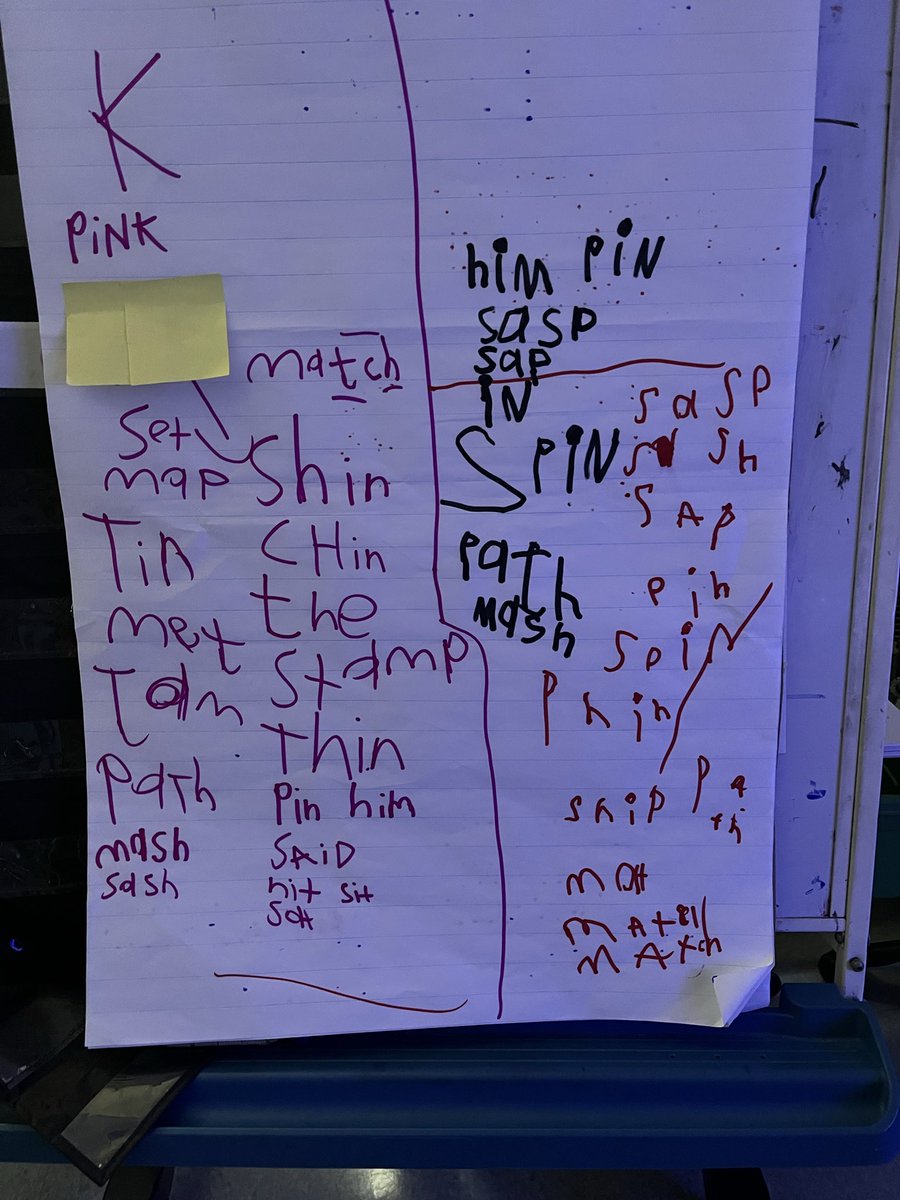 K
PiNK
match
Set
map
Tin
met
Tam
Path
mash
sash
Shin
CHin
the
Stamp
Thin
Pin him
SAiD
hit sit
Sat
him PiN
sasp
sap
IN
SPiN
Path
mash
sasp
Sh
SAp
pin
SpiN
Phin
Pa
th
mAtch